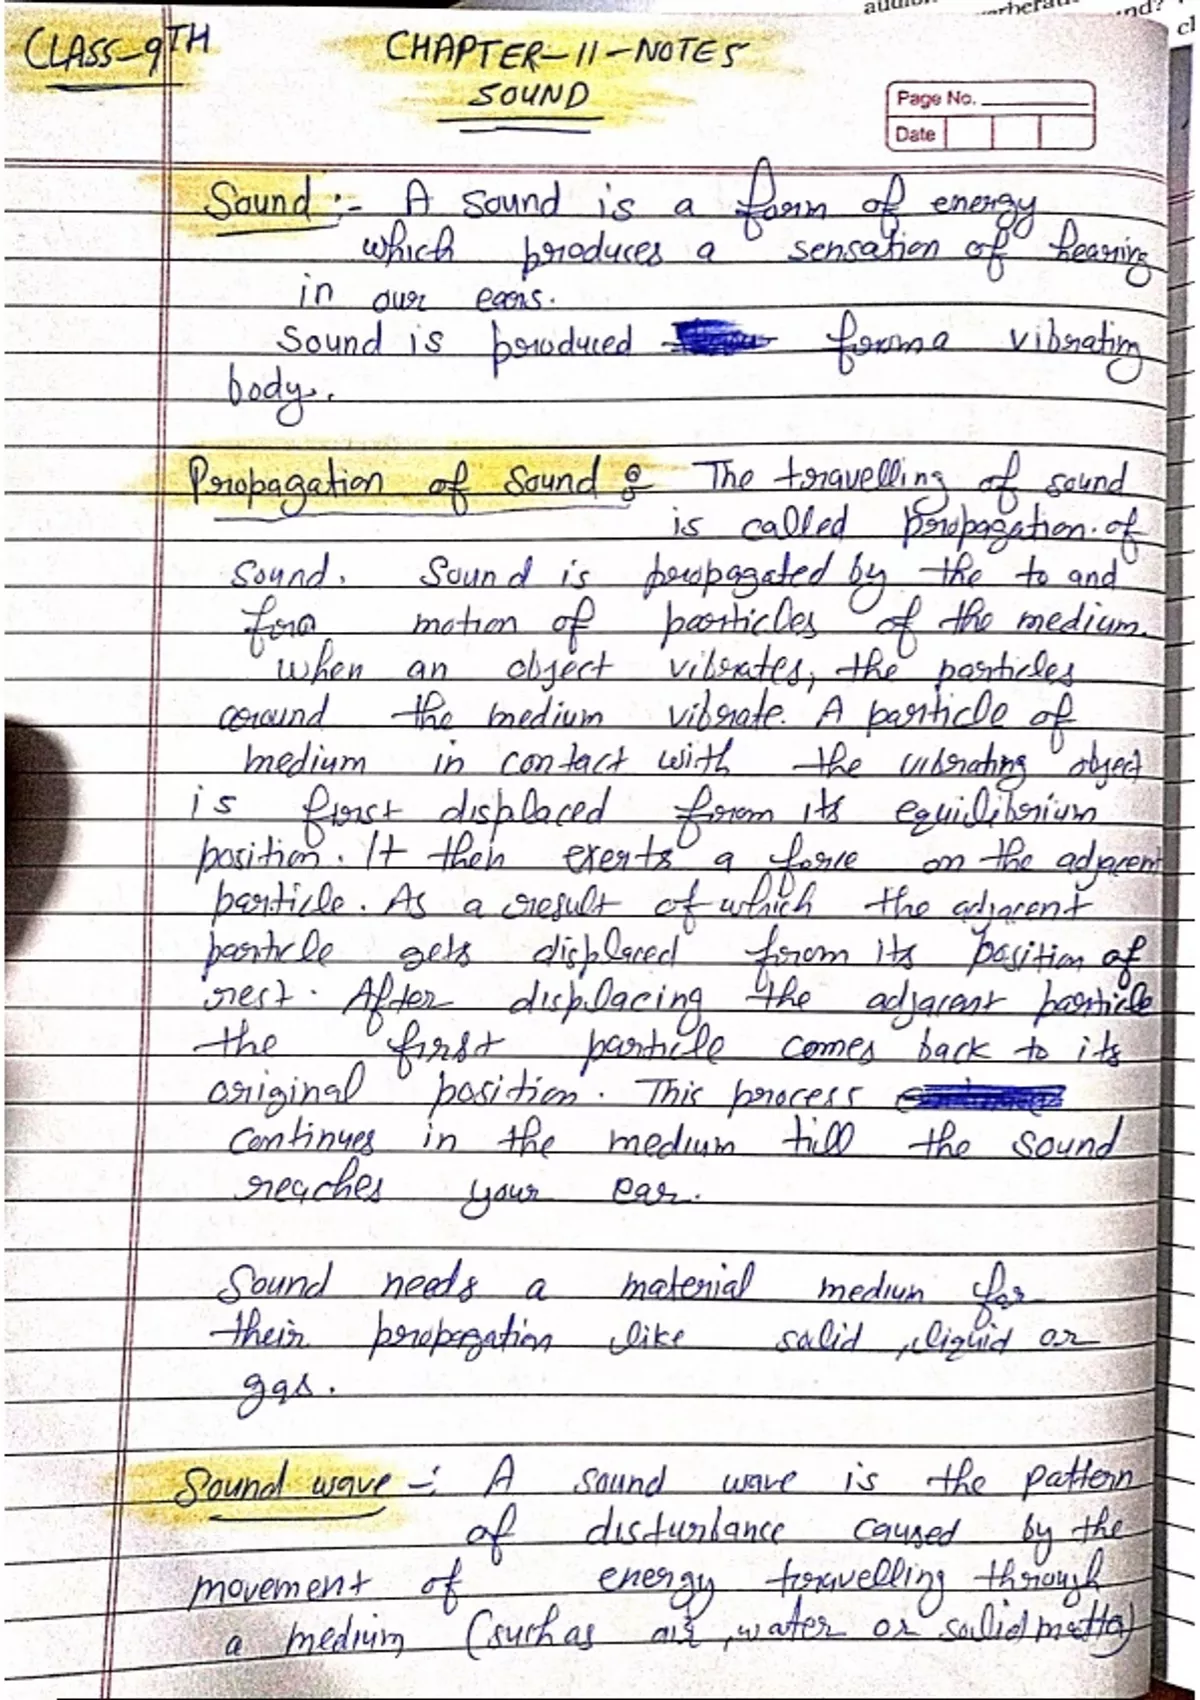 CLASS-9TH
CHAPTER-11-NOTES
SOUND
Page No.
Date
Sound :- A sound is a form of energy
which produces a sensation of hearing
in our ears.
Sound is produced from a vibrating
body.
Propagation of Sound : The travelling of sound
is called propagation of
sound. Sound is propagated by the to and
fro motion of particles of the medium.
When an object vibrates, the particles
around the medium vibrate. A particle of
medium in contact with the vibrating object
is first displaced from its equilibrium
position. It then exerts a force on the adjacent
particle. As a result of which the adjacent
particle gets displaced from its position of
rest. After displacing the adjacent particle
the first particle comes back to its
original position. This process
continues in the medium till the sound
reaches your ear.
Sound needs a material medium for
their propagation like solid, liquid or
gas.
Sound wave -: A sound wave is the pattern
of disturbance caused by the
movement of energy travelling through
a medium (such as air, water or solid matter)